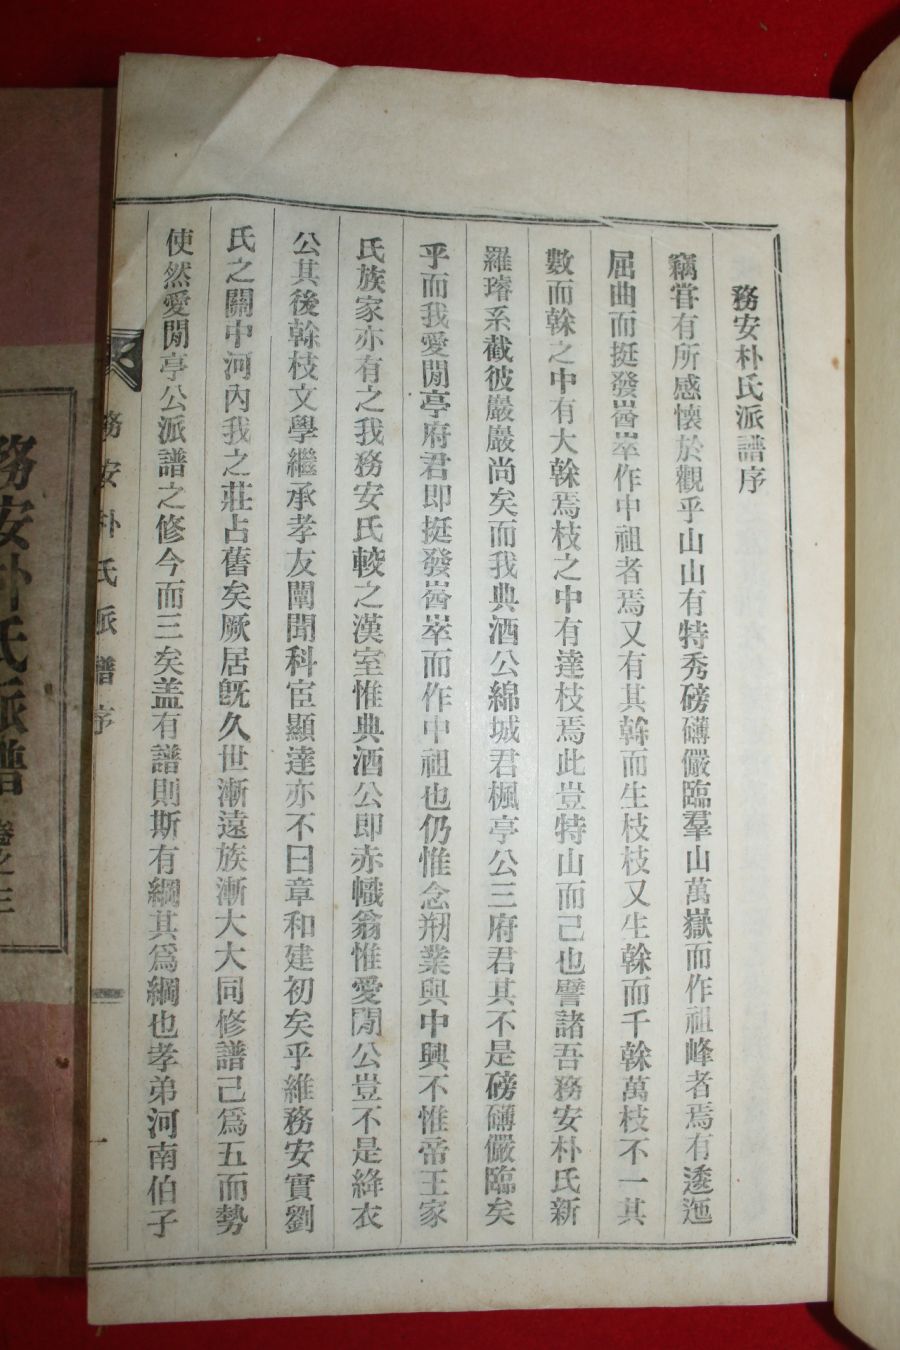 務安朴氏派譜序
竊嘗有所感懷於觀乎山山有特秀磅礴儼臨羣山萬嶽而作祖峰者焉有逶迤
屈曲而挺發崒作中祖者焉又有其幹而生枝枝又生榦而千榦萬枝不一其
數而榦之中有大榦焉枝之中有達枝焉此豈特山而己也譬諸吾務安朴氏新
羅璿系截彼嚴嚴尚矣而我典酒公綿城君楓亭公三府君其不是磅礴儼臨矣
乎而我愛閒亭府君即挺發崒而作中祖也仍惟念剏業與中興不惟帝王家
氏族家亦有之我務安氏較之漢室惟典酒公即赤幟翁惟愛閒公豈不是絳衣
公其後幹枝文學繼承孝友闡聞科宦顯達亦不曰章和建初矣乎維務安實劉
氏之關中河內我之莊占舊矣厥居旣久世漸遠族漸大大同修譜己爲五而勢
使然愛閒亭公派譜之修今而三矣盖有譜則斯有綱其爲綱也孝弟河南伯子
務安朴氏派譜序
一
務安朴氏派譜 卷之三